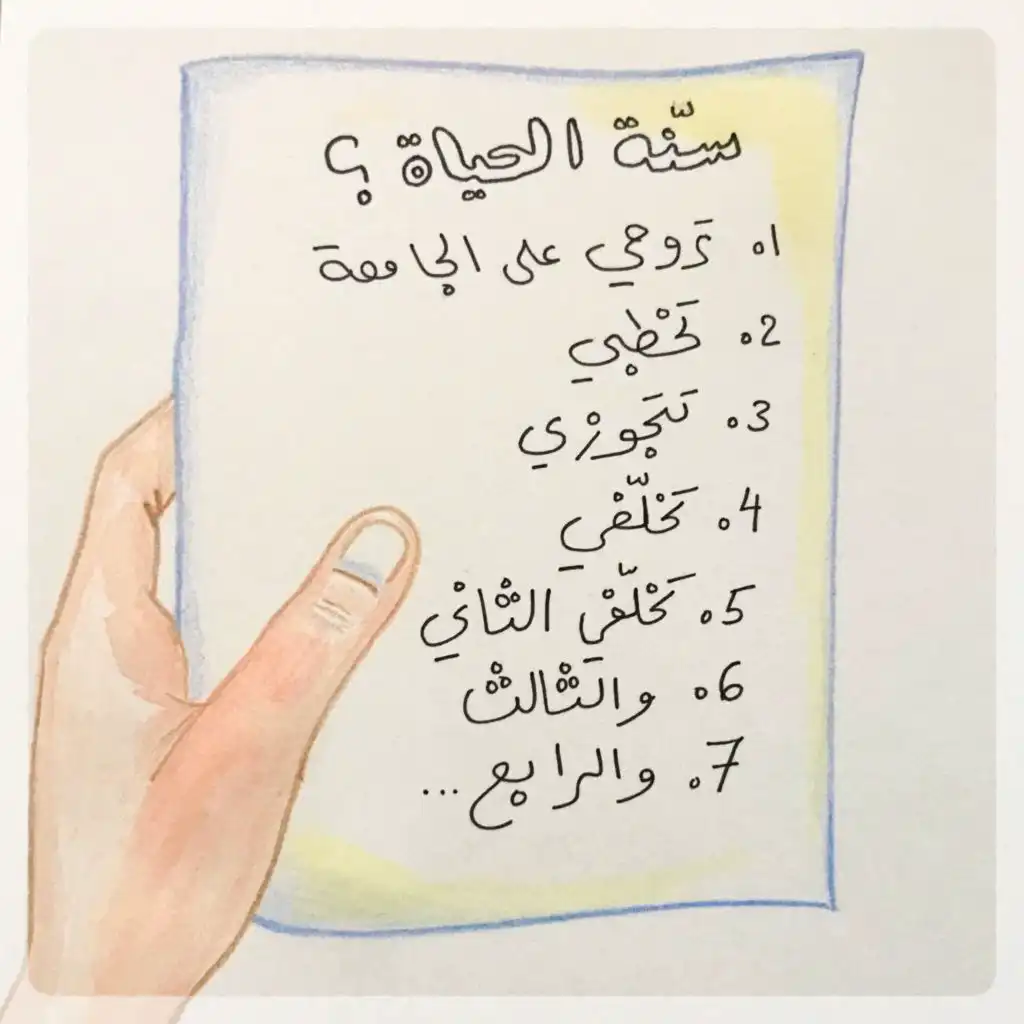 سنّة الحياة ؟
1. تروحي على الجامعة
2. تخْطبي
3. تَتَجوزي
4. تَخْلّفي
5. تَخْلّفي الثاني
6. والثالث
7. والرابع ...